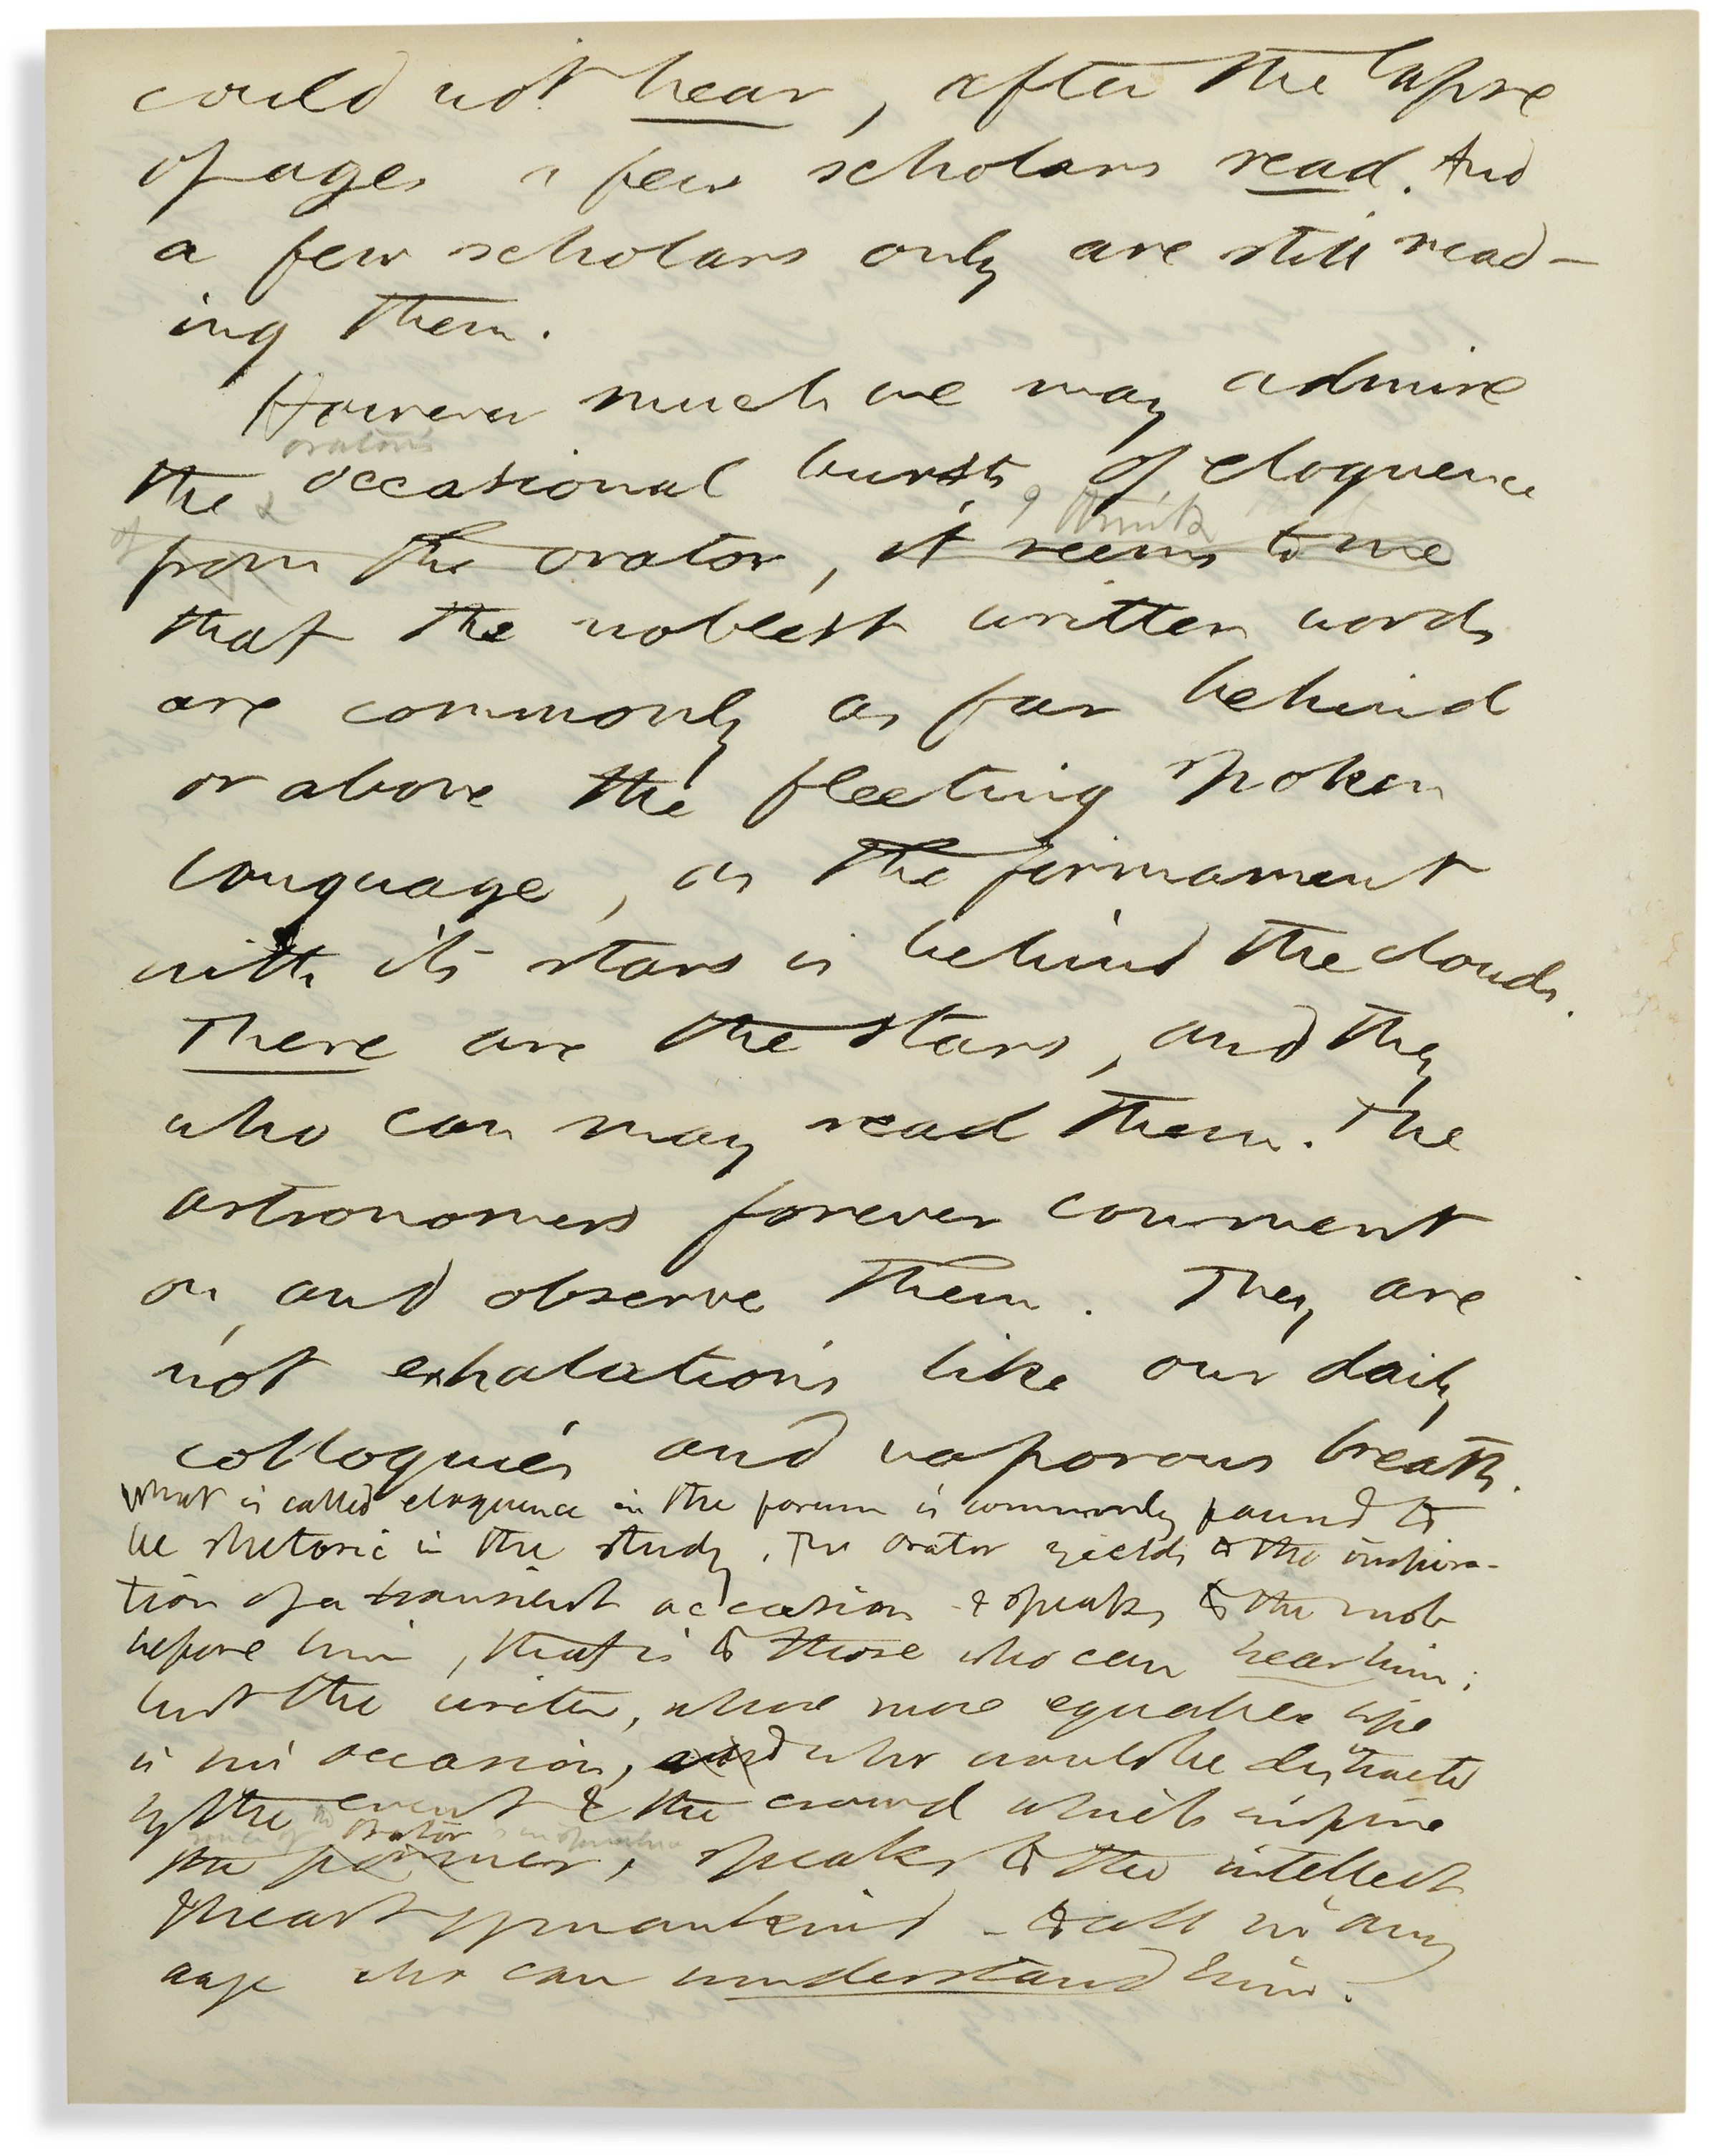 could not hear, after the lapse
of ages a few scholars read. And
a few scholars only are still read-
ing them.
However much we may admire
orator's
the & occasional bursts of eloquence
I think
of from the orator, it seems to me
that the noblest written words
are commonly as far behind
or above the fleeting spoken
language, as the firmament
with its stars is behind the clouds.
There are the stars, and they
who can may read them. The
astronomers forever comment
on, and observe them. They are
not exhalations like our daily
colloquies and vaporous breath.
What is called eloquence in the forum is commonly found to
be rhetoric in the study. The orator yields to the inspira-
tion of a transient occasion & speaks to the mob
before him, that is to those who can hear him;
but the writer, whose more equable life
is his occasion, and who would be distracted
by the event & the crowd which inspire
the orator
the former, speaks to the intellect
& heart of mankind - to all in any
age who can understand him.